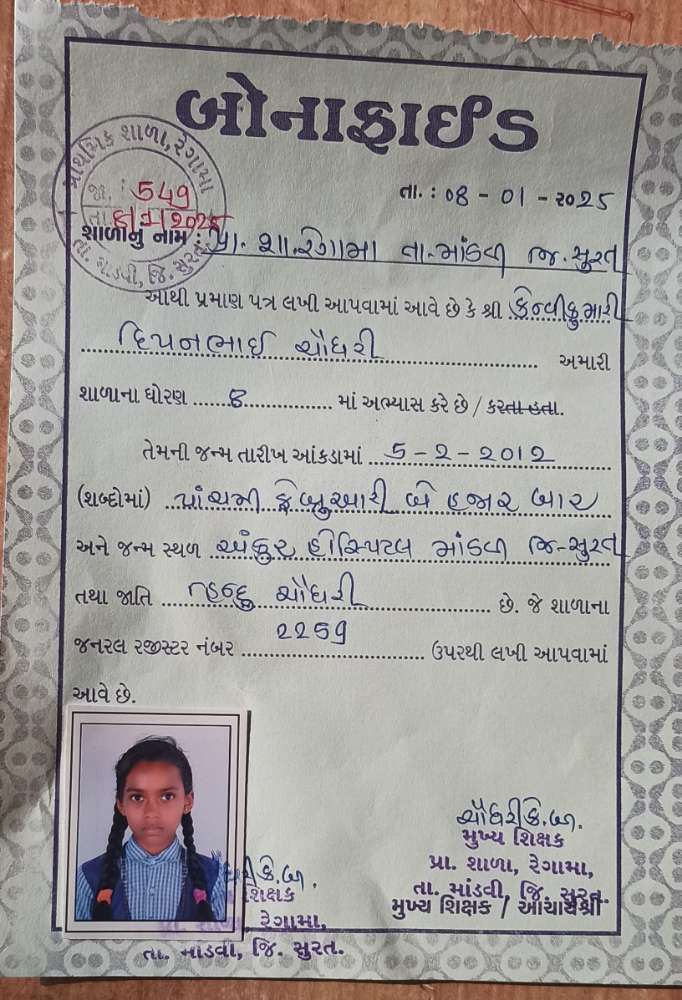 બોનાફાઈડ
પ્રાથમિક શાળા, રેગામા
તા. માંડવી, જિ. સુરત
જા. : 549
તા. 8/1/2025
તા. : 08 - 01 - ૨૦૨૫
શાળાનું નામ : પ્રા. શા. રેગામા તા. માંડવી જિ. સુરત
આથી પ્રમાણ પત્ર લખી આપવામાં આવે છે કે શ્રી ક્રેન્વીકુમારી
દિપનભાઈ ચૌધરી અમારી
શાળાના ધોરણ ૭ માં અભ્યાસ કરે છે / કરતા હતા.
તેમની જન્મ તારીખ આંકડામાં ૫ - ૨ - ૨૦૧૨
(શબ્દોમાં) પાંચમી ફેબ્રુઆરી બે હજાર બાર
અને જન્મ સ્થળ અંકુર હોસ્પિટલ માંડવી જિ-સુરત
તથા જાતિ હિન્દુ ચૌધરી છે. જે શાળાના
જનરલ રજીસ્ટર નંબર ૨૨૬૭ ઉપરથી લખી આપવામાં
આવે છે.
ચૌધરી કે.બી.
મુખ્ય શિક્ષક
પ્રા. શાળા, રેગામા,
તા. માંડવી, જિ. સુરત.
મુખ્ય શિક્ષક / આચાર્યશ્રી
શિક્ષક
પ્રા. શાળા, રેગામા,
તા. માંડવી, જિ. સુરત.